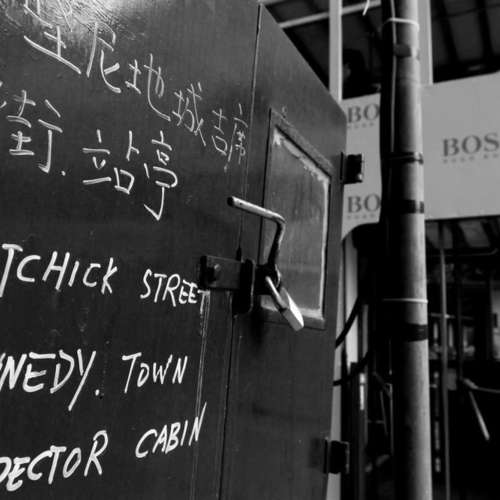 堅尼地城吉席
街.站亭
TCHICK STREET
NEDY. TOWN
PECTOR CABIN
BO
BOS
BO